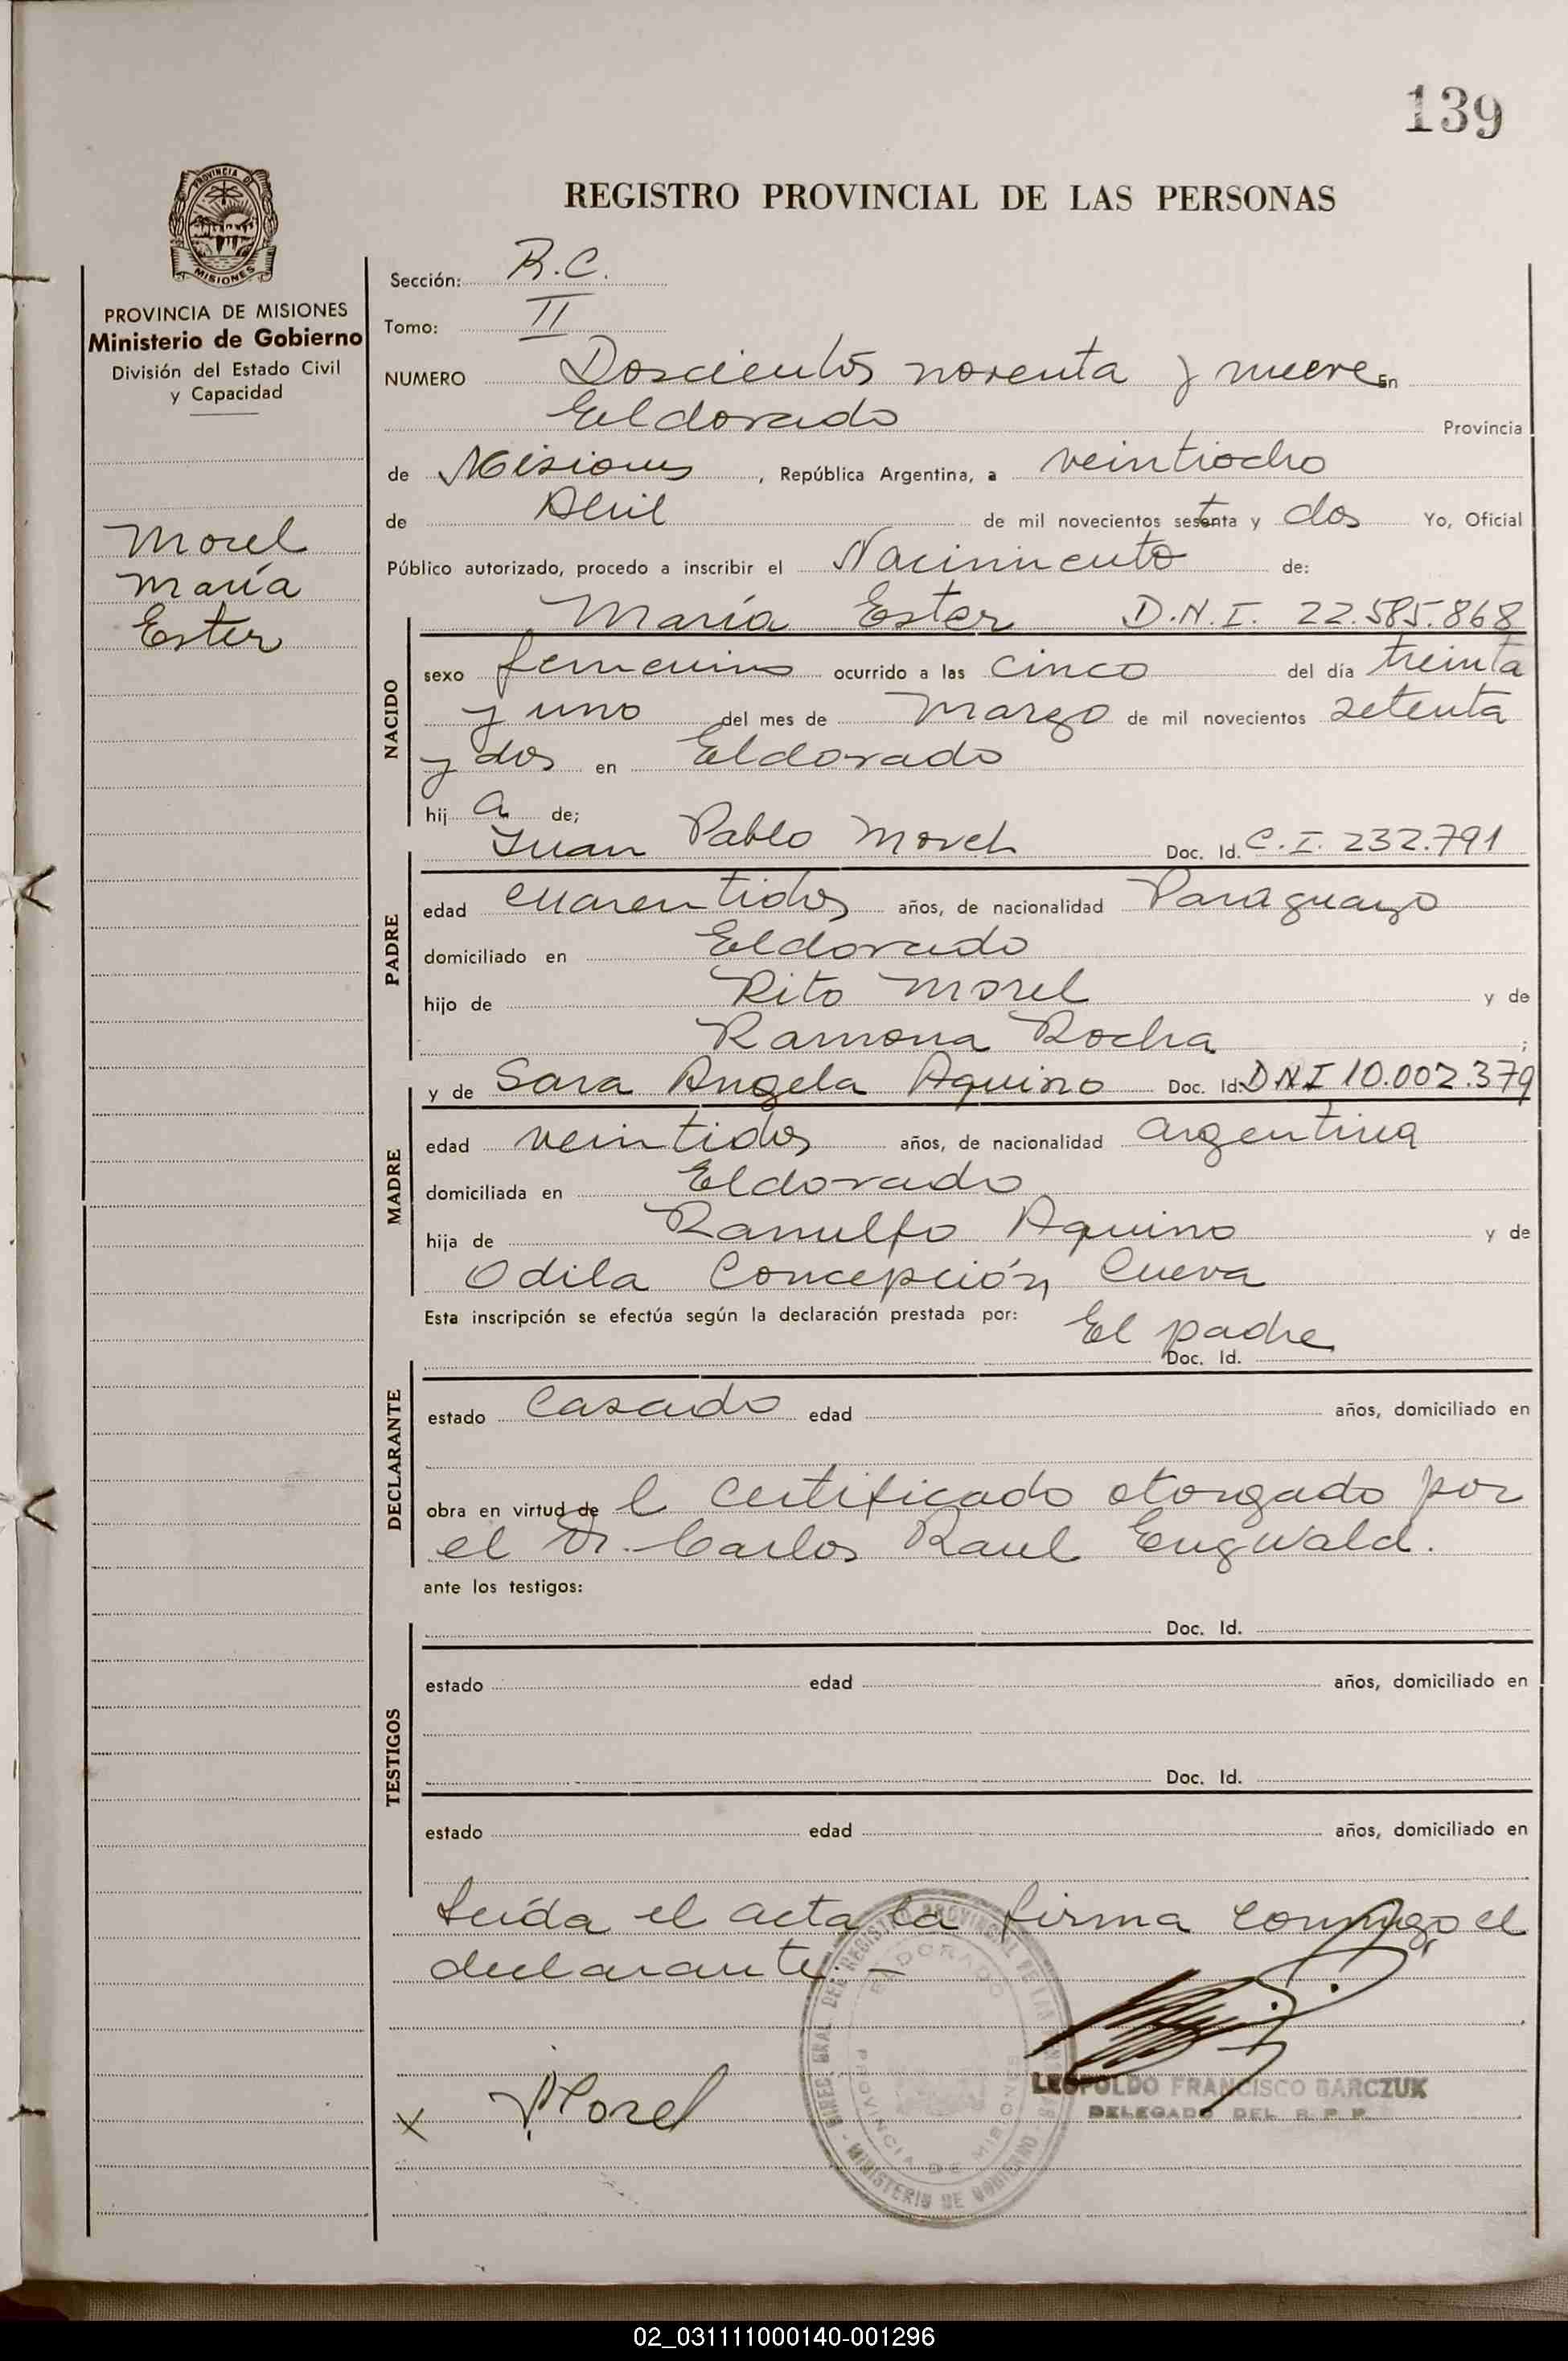 139
PROVINCIA DE MISIONES
REGISTRO PROVINCIAL DE LAS PERSONAS
PROVINCIA DE MISIONES
Ministerio de Gobierno
División del Estado Civil
y Capacidad
Morel
María
Ester
Sección: R.C.
Tomo: II
NUMERO Doscientos noventa y nueve En
Eldorado Provincia
de Misiones, República Argentina, a veintiocho
de Abril de mil novecientos setenta y dos Yo, Oficial
Público autorizado, procedo a inscribir el Nacimiento de:
María Ester D.N.I. 22.585.868
NACIDO
sexo femenino ocurrido a las cinco del día treinta
y uno del mes de Marzo de mil novecientos setenta
y dos en Eldorado
hij a de;
Juan Pablo Morel Doc. Id. C.I. 232.791
PADRE
edad cuarentidos años, de nacionalidad Paraguayo
domiciliado en Eldorado
hijo de Rito Morel y de
Ramona Rocha ;
y de Sara Angela Aquino Doc. Id. DNI 10.002.379
MADRE
edad veintidos años, de nacionalidad argentina
domiciliada en Eldorado
hija de Ranulfo Aquino y de
Odila Concepción Cueva
Esta inscripción se efectúa según la declaración prestada por: El padre
Doc. Id.
DECLARANTE
estado Casado edad años, domiciliado en
obra en virtud de l Certificado otorgado por
el Dr. Carlos Raul Engwald.
ante los testigos:
Doc. Id.
TESTIGOS
estado edad años, domiciliado en
Doc. Id.
estado edad años, domiciliado en
Leída el acta la firma conmigo el
declarante.-
DIREC. GRAL. DEL REGISTRO PROVINCIAL DE LAS PERSONAS
ELDORADO
PROVINCIA DE MISIONES
MINISTERIO DE GOBIERNO
x Morel
LEOPOLDO FRANCISCO BARCZUK
DELEGADO DEL R. P. P.
02_031111000140-001296